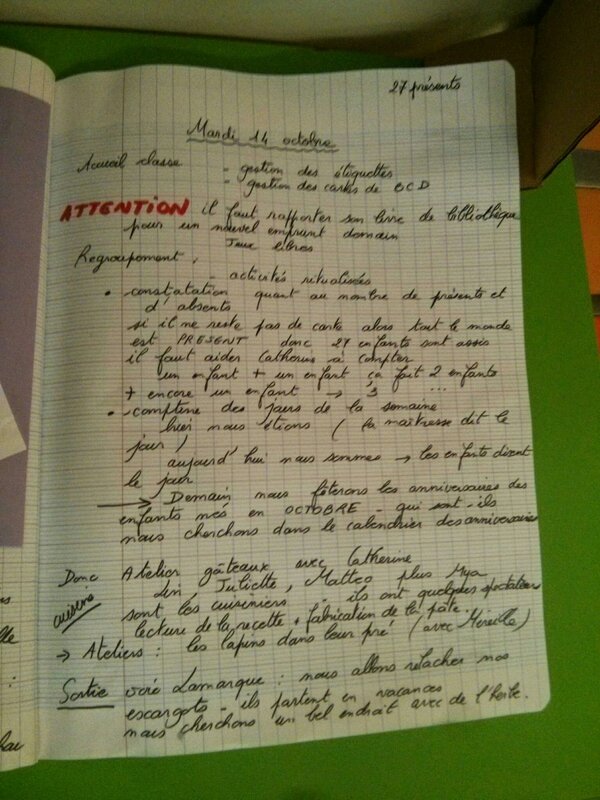 27 présents
Mardi 14 octobre
Accueil classe
- gestion des étiquettes
- gestion des cartes de BCD
ATTENTION il faut rapporter son livre de bibliothèque
pour un nouvel emprunt demain
Jeux libres
Regroupement,
- activités ritualisées
• constatation quant au nombre de présents et
d'absents
si il ne reste pas de carte alors tout le monde
est PRESENT donc 27 enfants sont assis
il faut aider Catherine à compter
un enfant + un enfant ça fait 2 enfants
+ encore un enfant → 3 ...
• comptine des jours de la semaine
hier nous étions (la maîtresse dit le
jour)
aujourd'hui nous sommes → les enfants disent
le jour
→ Demain nous fêterons les anniversaires des
enfants nés en OCTOBRE - qui sont-ils
nous cherchons dans le calendrier des anniversaires
Donc Atelier gâteaux avec Catherine
Lin, Juliette, Matteo plus Mya
cuisine sont les cuisiniers - ils ont quelques spectateurs
lecture de la recette + fabrication de la pâte.
→ Ateliers : les lapins dans leur pré (avec Mireille)
Sortie voie Lamarque : nous allons relacher nos
escargots - ils partent en vacances
nous cherchons un bel endroit avec de l'herbe.
lle
: